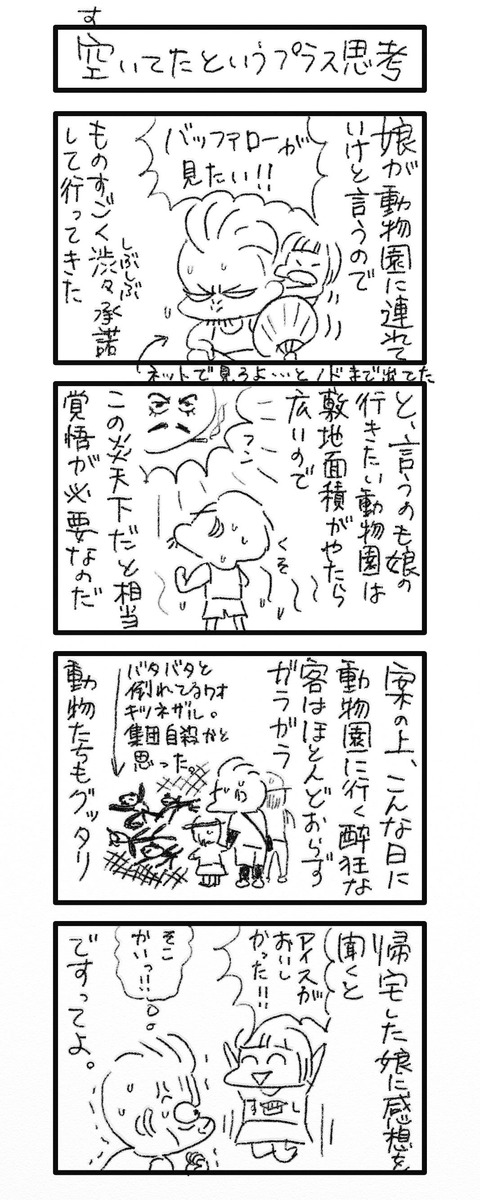 す
空いてたというプラス思考
娘が動物園に連れて
いけと言うので
バッファローが
見たい!!
ものすごく渋々承諾
しぶしぶ
して行ってきた
ネットで見ろよ…とノドまで出てた
と、言うのも娘の
行きたい動物園は
敷地面積がやたら
広いので
フン
くそ
この炎天下だと相当
覚悟が必要なのだ
案の上、こんな日に
動物園に行く酔狂な
客はほとんどおらず
ガラガラ
バタバタと
倒れてるワオ
キツネザル。
集団自殺かと
思った。
動物たちもグッタリ
帰宅した娘に感想を
聞くと
アイスが
おいし
かった!!
そこ
かいっ!!
ですってよ。